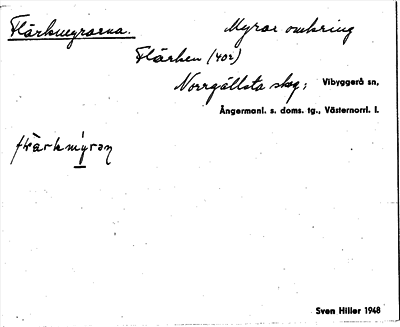 Flärkmyrarna. Myrar omkring
Flärken (402)
Norrgällsta skog; Vibyggerå sn,
Ångermanl. s. doms. tg., Västernorrl. l.
flärkmýran
Sven Hiller 1948